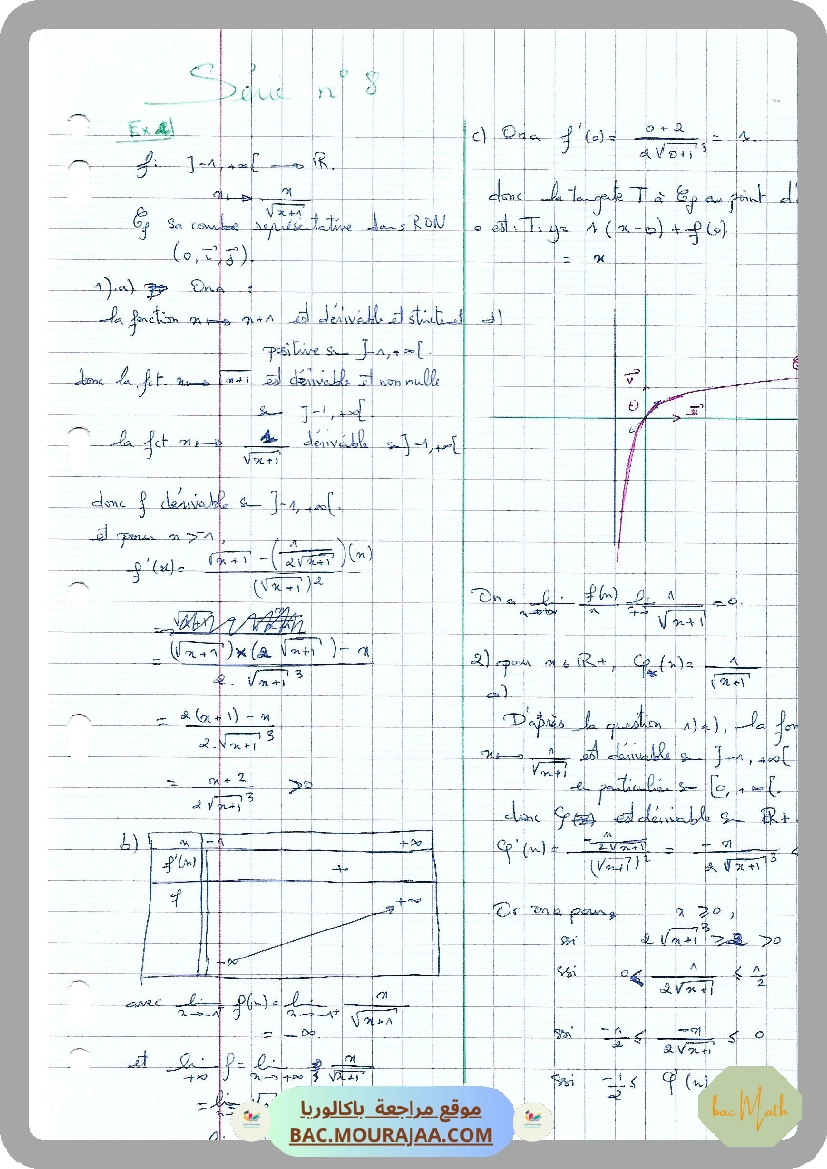 Série n° 8
Ex 2)
f: ]-1,+∞[ → ℝ.
x ↦ x/√(x+1)
𝒞f sa courbe représentative dans RON
(o, i⃗, j⃗).
1).a) On a :
la fonction x ↦ x+1 est dérivable et strictement
positive sur ]-1,+∞[.
donc la fct x ↦ √(x+1) est dérivable et non nulle
sur ]-1,+∞[.
la fct x ↦ 1/√(x+1) dérivable sur ]-1,+∞[
donc f dérivable sur ]-1,+∞[.
et pour x > -1,
f'(x) = (√(x+1) - (1/(2√(x+1)))(x)) / (√(x+1))²
= ((√(x+1))×(2√(x+1)) - x) / (2.√(x+1)³)
= (2(x+1) - x) / (2.√(x+1)³)
= (x+2) / (2√(x+1)³) > 0
b)
x -1 +∞
f'(x) +
f -∞ +∞
avec lim x→-1⁺ f(x) = lim x→-1⁺ x/√(x+1)
= -∞.
et lim +∞ f = lim x→+∞ x/√(x+1)
= lim
c) On a f'(0) = (0+2)/(2√(0+1)³) = 1.
donc la tangente T à 𝒞f au point d'
0 est: T: y = 1(x-0) + f(0)
= x
d)
On a lim x→+∞ f(x)/x = lim +∞ 1/√(x+1) = 0.
2) pour x ∈ ℝ+, φ(x) = 1/√(x+1)
a)
D'après la question 1)a), la fon
x ↦ 1/√(x+1) est dérivable sur ]-1,+∞[
en particulier sur [0,+∞[.
donc φ est dérivable sur ℝ+
φ'(x) = (-1/(2√(x+1)))/(√(x+1))² = -1/(2√(x+1)³) <
Or on a pour x ≥ 0,
ssi 2√(x+1)³ ≥ 2 > 0
ssi 0 ≤ 1/(2√(x+1)) ≤ 1/2
ssi -1/2 ≤ -1/(2√(x+1)) ≤ 0
ssi -1/2 ≤ φ'(x)
موقع مراجعة باكالوريا
BAC.MOURAJAA.COM
bac Math